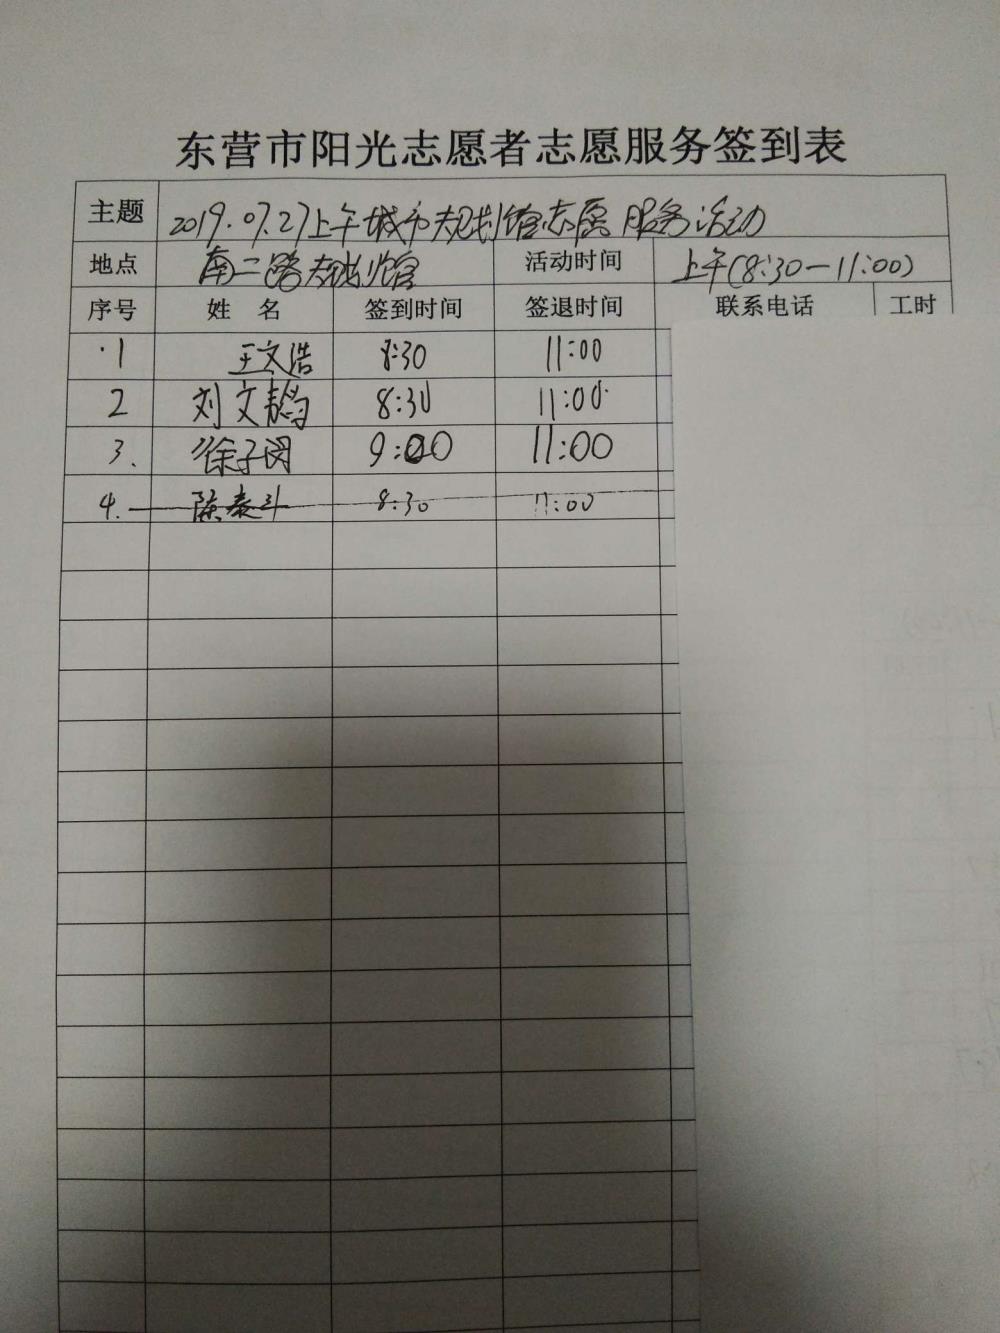 东营市阳光志愿者志愿服务签到表
主题 2019.07.27上午城市规划馆志愿服务活动
地点 南二路规划馆 活动时间 上午(8:30-11:00)
序号 姓名 签到时间 签退时间 联系电话 工时
1 王文浩 8:30 11:00
2 刘文 8:30 11:00
3. 徐子 9:00 11:00
4. 陈泰斗 8:30 11:00